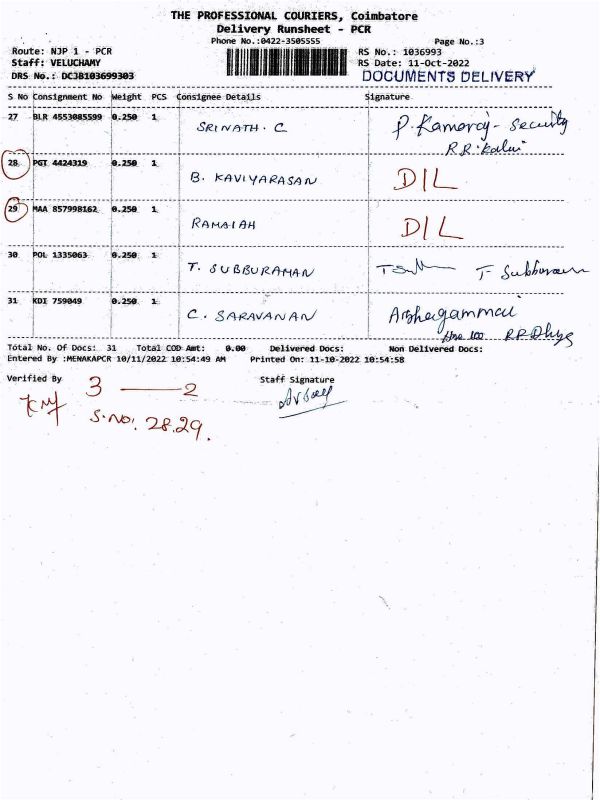 THE PROFESSIONAL COURIERS, Coimbatore
Delivery Runsheet - PCR
Phone No.:0422-3505555 Page No.:3
Route: NJP 1 - PCR RS No.: 1036993
Staff: VELUCHAMY RS Date: 11-Oct-2022
DRS No.: DCJB103699303 DOCUMENTS DELIVERY
S No Consignment No Weight PCS Consignee Details Signature
27 BLR 4553085599 0.250 1 SRINATH. C P. Kamaraj - Security
28 PGT 4424319 0.250 1 B. KAVIYARASAN DIL
29 MAA 857998162 0.250 1 RAMAIAH DIL
30 POL 1335063 0.250 1 T. SUBBURAMAN T. Subburaman
31 KDI 759049 0.250 1 C. SARAVANAN Azhagammai
Total No. Of Docs: 31 Total COD Amt: 0.00 Delivered Docs: Non Delivered Docs:
Entered By :MENAKAPCR 10/11/2022 10:54:49 AM Printed On: 11-10-2022 10:54:58
Verified By 3 — 2 Staff Signature
S.no: 28.29.